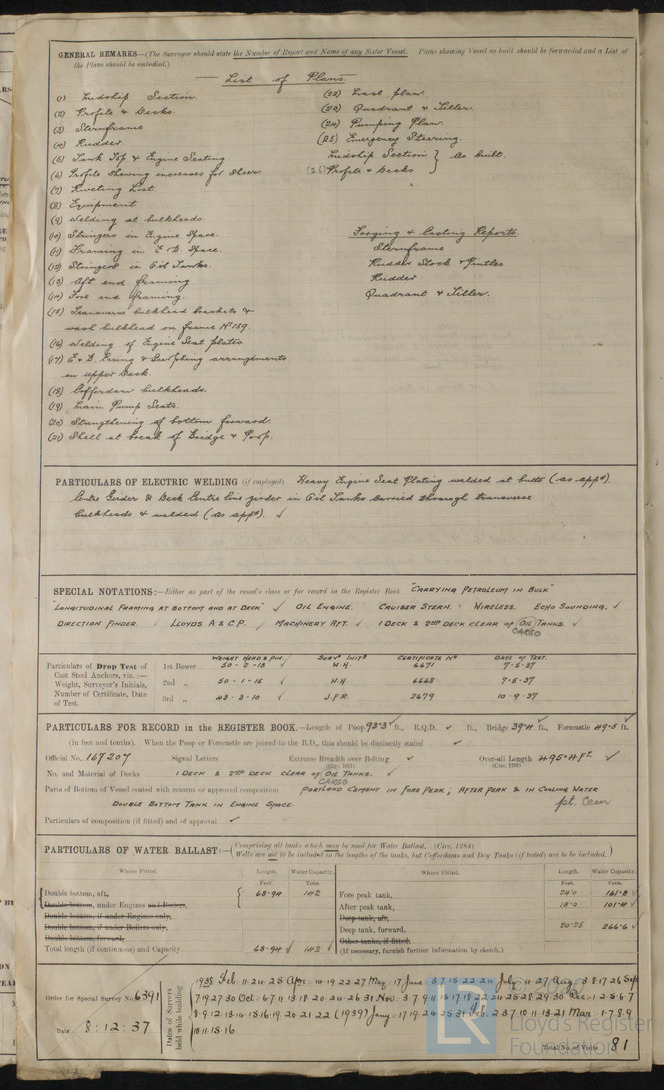 GENERAL REMARKS—(The Surveyor should state the Number of Report and Name of any Sister Vessel. Plans showing Vessel as built should be forwarded and a List of
the Plans should be embodied.)
List of Plans.
(1) Midship Section.
(2) Profile & Decks.
(3) Sternframe
(4) Rudder
(5) Tank Top & Engine Seating
(6) Profile showing increases for Sheer.
(7) Riveting List.
(8) Equipment
(9) Welding at bulkheads.
(10) Stringers in Engine Space.
(11) Framing in E & B Space.
(12) Stringers in Oil Tanks.
(13) Aft end framing
(14) Fore end framing.
(15) Transverse bulkhead brackets &
wash bulkhead on frame No 159.
(16) Welding of Engine Seat plates
(17) E & B Casing & Scarphing arrangements
on upper Deck.
(18) Cofferdam bulkheads.
(19) Main Pump Seats.
(20) Strengthening of bottom forward.
(21) Shell at break of Bridge & Poop.
(22) Mast plan.
(23) Quadrant & Tiller.
(24) Pumping Plan.
(25) Emergency Steering.
Midship Section } As built.
(26) Profile & Decks
Forging & Casting Reports.
Sternframe
Rudder Stock & Pintles
Rudder
Quadrant & Tiller.
PARTICULARS OF ELECTRIC WELDING (if employed) Heavy Engine Seat Plating welded at butts (as appd).
Centre Girder & Deck Centre line girder in Oil Tanks carried through transverse
bulkheads & welded (as appd). ✓
SPECIAL NOTATIONS:—Either as part of the vessel's class or for record in the Register Book "CARRYING PETROLEUM IN BULK"
"LONGITUDINAL FRAMING AT BOTTOM AND AT DECK" ✓ OIL ENGINE. CRUISER STERN. WIRELESS. ECHO SOUNDING. ✓
DIRECTION FINDER. LLOYDS A & C.P. ✓ MACHINERY AFT. ✓ 1 DECK & 2ND DECK CLEAR OF OIL TANKS. ✓
CARGO
Particulars of Drop Test of
Cast Steel Anchors, viz.:—
Weight, Surveyor's Initials,
Number of Certificate, Date
of Test.
WEIGHT HEAD & PIN. SURVS INITS CERTIFICATE No DATE OF TEST.
1st Bower 50-2-13 ✓ W.H. 6671 7-5-37
2nd „ 50-1-15 ✓ W.H. 6668 7-5-37
3rd „ 43-3-10 ✓ J.F.R. 2679 10-9-37
PARTICULARS FOR RECORD in the REGISTER BOOK.—Length of Poop 93·3 ft., R.Q.D. ✓ ft., Bridge 39·4 ft., Forecastle 49·5 ft.
(in feet and tenths). When the Poop or Forecastle are joined to the B.D., this should be distinctly stated ✓
Official No. 167207 Signal Letters Extreme Breadth over Belting ✓ Over-all Length 495·4 FT. ✓
(Circ. 1611) (Circ. 1703)
No. and Material of Decks 1 DECK & 2ND DECK CLEAR OF OIL TANKS.
CARGO
Parts of Bottom of Vessel coated with cement or approved composition PORTLAND CEMENT IN FORE PEAK; AFTER PEAK & IN COOLING WATER
DOUBLE BOTTOM TANK IN ENGINE SPACE. pt. Cem
Particulars of composition (if fitted) and of approval ✓
PARTICULARS OF WATER BALLAST:—(Comprising all tanks which may be used for Water Ballast. (Circ. 1284)
Wells are not to be included in the lengths of the tanks, but Cofferdams and Dry Tanks (if tested) are to be included.)
Where Fitted. Length. Water Capacity. Where Fitted. Length. Water Capacity.
Feet. Tons. Feet. Tons.
Double bottom, aft, 68·94 142 Fore peak tank, 24·0 161·8
Double bottom, under Engines and Boilers, After peak tank, 18·0 101·4
Double bottom, if under Engines only, Deep tank, aft,
Double bottom, if under Boilers only, Deep tank, forward, 20·25 266·6 ✓
Double bottom, forward, Other tanks, if fitted,
Total length (if continuous) and Capacity 68·94 142 (If necessary, furnish further information by sketch.)
Order for Special Survey No. 6391
Date 8:12:37
Dates of Surveys
held while building
1938 Feb: 11·24·25 Apr: 19·22·27 May: 17 June 3·7·15·22·24 July 11·27 Aug 3·8·17·26 Sep
7·19·27·30 Oct: 6·7·11·13·18·20·24·26·31 Nov: 3·7·9·11·16·17·18·22·24·25·28·29·30 Dec: 1·2·5·6·7
8·9·12·13·14·15·16·19·20·21·22 (1939) Jany: 17·19·24·25·31 Feb 2·3·7·10·11·13·21 Mar: 1·7·8·9
10·11·15·16
Total No. of Visits 81
Lloyd's Register
Foundation